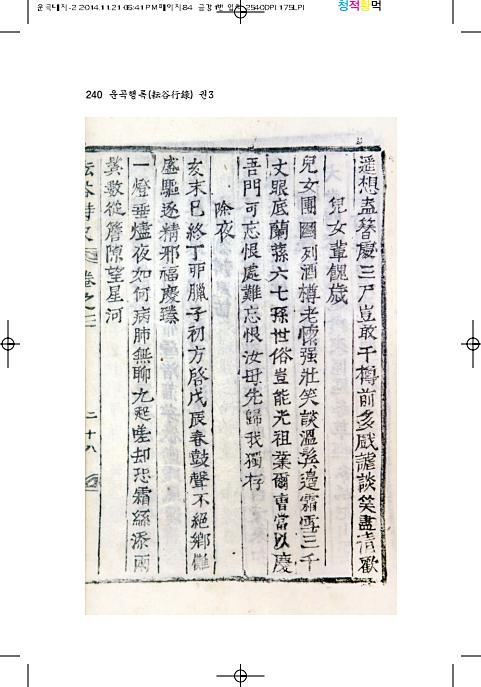 운곡내지-2 2014.11.21 05:41 PM 페이지84
2540DPI 175LPI
청적황먹
240 운곡행록(耘谷行錄) 권3
遥想盍簪慶三尸豈敢干樽前多戱謔談笑盡淸歡
兒女輩餽歲
兒女團圝列酒樽老懷强壯笑談溫鬂邊霜雪三千
丈眼底蘭蓀六七孫世俗豈能光祖業爾曹當以慶
吾門可忘恨處難忘恨汝母先歸我獨存
除夜
亥末已終丁卯臘子初方啓戊辰春鼓聲不絶鄕儺
盛驅逐精邪福慶臻
一燈垂燼夜如何病肺無聊九起嗟却恐霜絲添兩
鬓數從簷隙望星河
耘谷詩史 卷之三 二十八